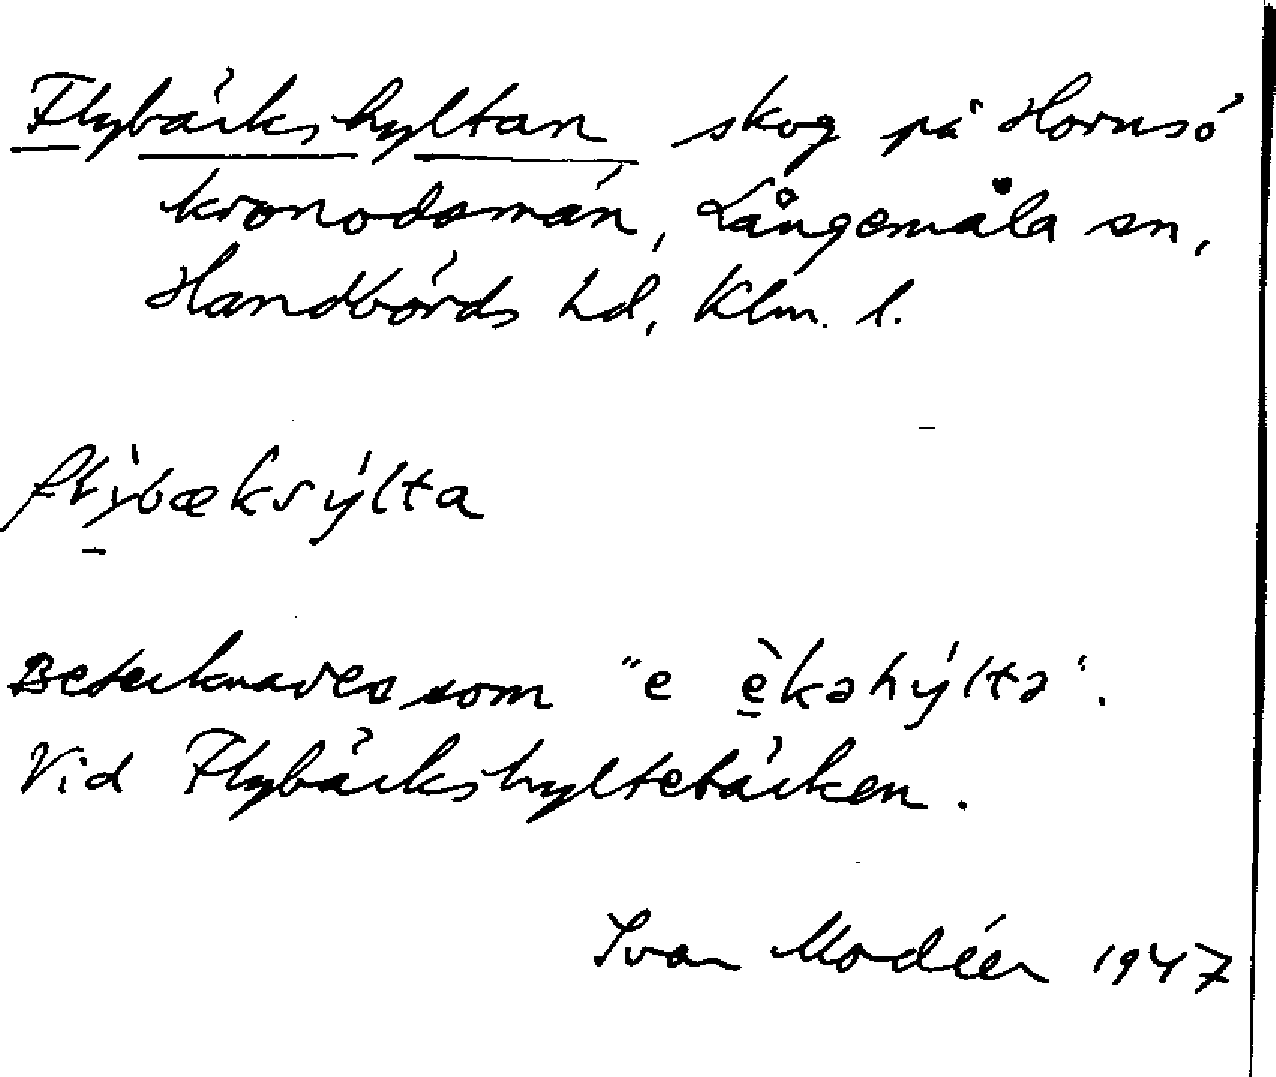 Flybäckshyltan skog på Hornsö
kronodomän, Långemåla sn,
Handbörds hd, Klm. l.
flỳbæksýlta
Betecknades som "e èkəhýltə".
Vid Flybäckshyltebäcken.
Ivar Modéer 1947